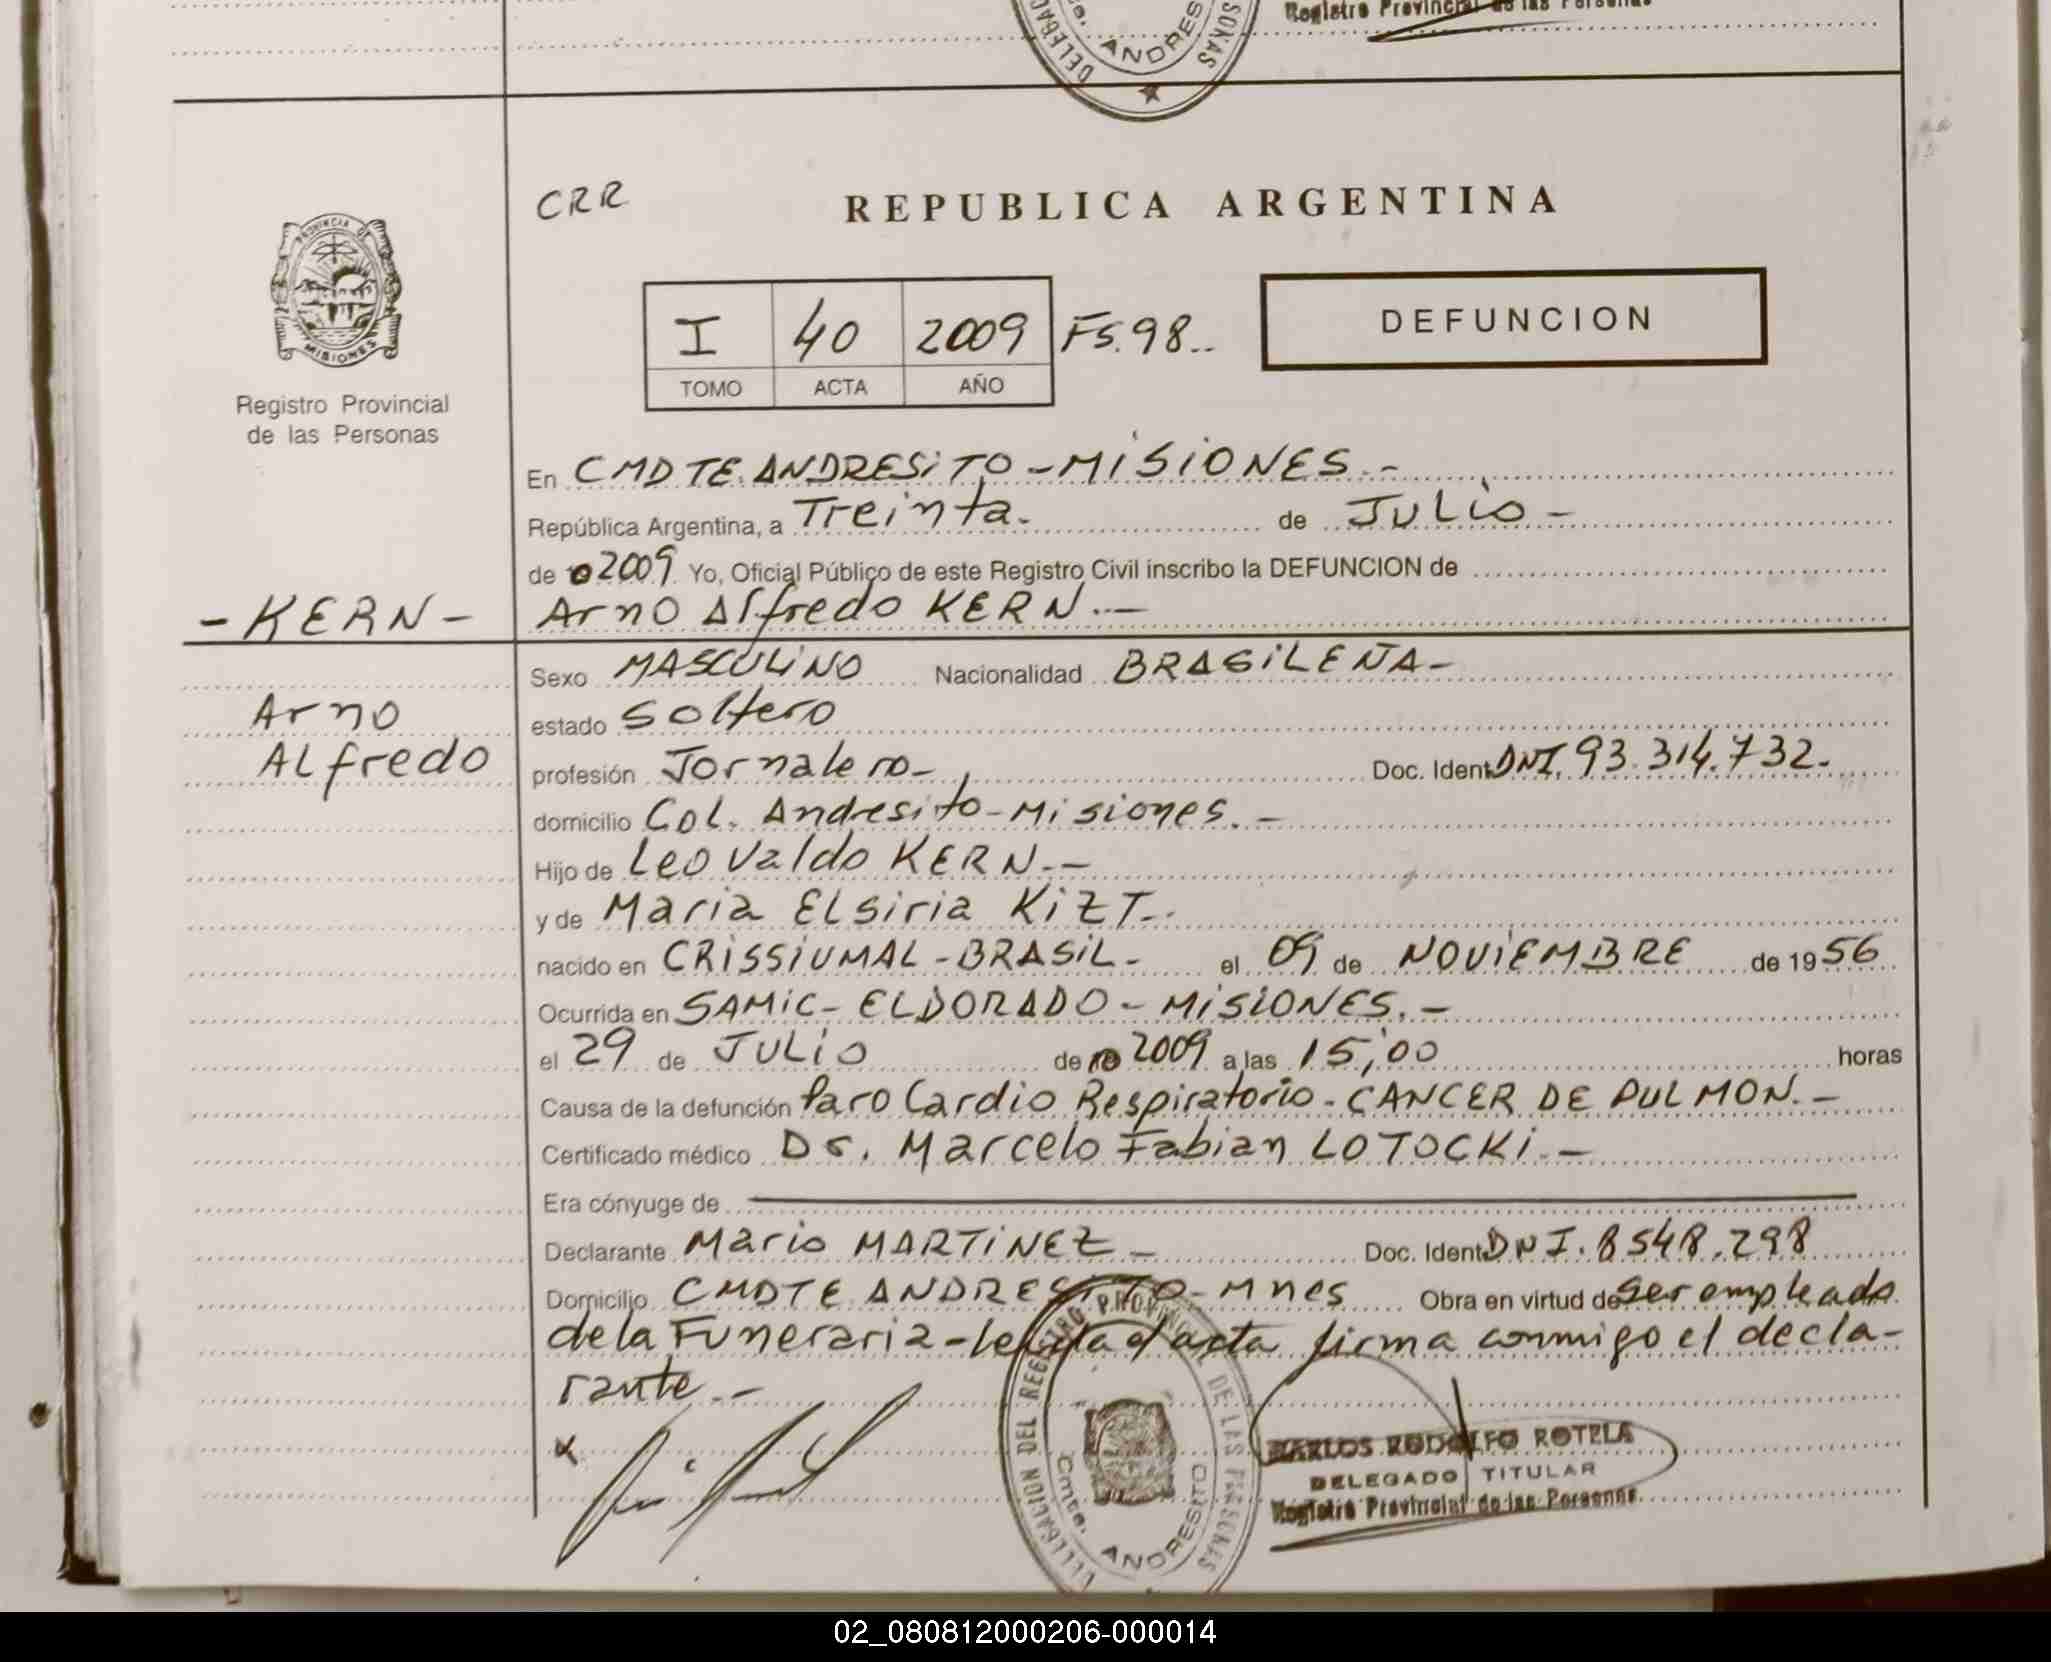 DELEGAC
SONAS
Cmte. ANDRES
Registro Provincial de las Personas
CRR
REPUBLICA ARGENTINA
PROVINCIA DE
MISIONES
Registro Provincial
de las Personas
I 40 2009 FS.98..
TOMO ACTA AÑO
DEFUNCION
En CMDTE. ANDRESITO - MISIONES.-
República Argentina, a Treinta. de JULIO -
de 2009 Yo, Oficial Público de este Registro Civil inscribo la DEFUNCION de
- KERN - Arno Alfredo KERN.-
Sexo MASCULINO Nacionalidad BRASILEÑA-
Arno
estado Soltero
Alfredo
profesión Jornalero- Doc. Ident. DNI. 93.314.732.
domicilio Col. Andresito - Misiones.-
Hijo de Leo Valdo KERN.-
y de Maria Elsiria KIZT..
nacido en CRISSIUMAL - BRASIL- el 09 de NOVIEMBRE de 1956
Ocurrida en SAMIC - ELDORADO - MISIONES.-
el 29 de JULIO de 2009 a las 15;00 horas
Causa de la defunción Paro Cardio Respiratorio - CANCER DE PULMON.-
Certificado médico Dr. Marcelo Fabian LOTOCKI.-
Era cónyuge de
Declarante Mario MARTINEZ - Doc. Ident. DNI. 8548.298
Domicilio CMDTE ANDRESITO - Mnes Obra en virtud de ser empleado
de la Funeraria - leida el acta firma conmigo el decla-
rante.-
DELEGACION DEL REGISTRO PROVINCIAL DE LAS PERSONAS
Cmte. ANDRESITO
CARLOS RODOLFO ROTELA
DELEGADO TITULAR
Registro Provincial de las Personas
02_080812000206-000014